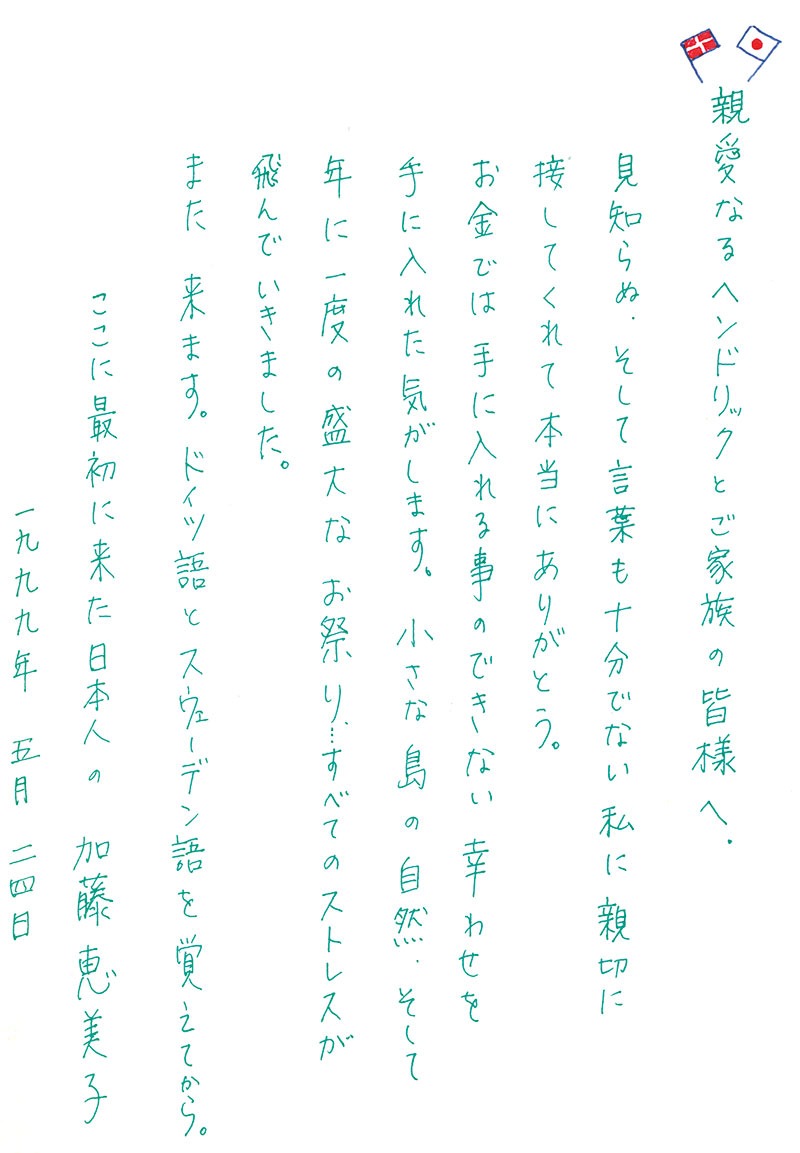 親愛なるヘンドリックとご家族の皆様へ.
見知らぬ.そして言葉も十分でない私に親切に
接してくれて本当にありがとう。
お金では手に入れる事のできない幸わせを
手に入れた気がします。小さな島の自然.そして
年に一度の盛大なお祭り…すべてのストレスが
飛んでいきました。
また 来ます。ドイツ語とスウェーデン語を覚えてから。
ここに最初に来た日本人の 加藤恵美子
一九九九年 五月 二四日